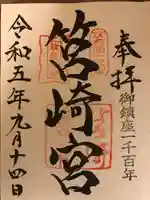 奉拝
御鎮座一千百年
筥崎宮
令和五年九月十四日